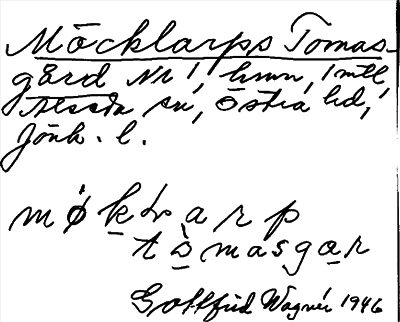 Möcklarps Tomas-
gård Nr 1, hmn, 1 mtl,
Alseda sn, Östra hd,
Jönk. l.
møk̲ḷarp
tò̲masga̲r
Gottfrid Wagnér 1946